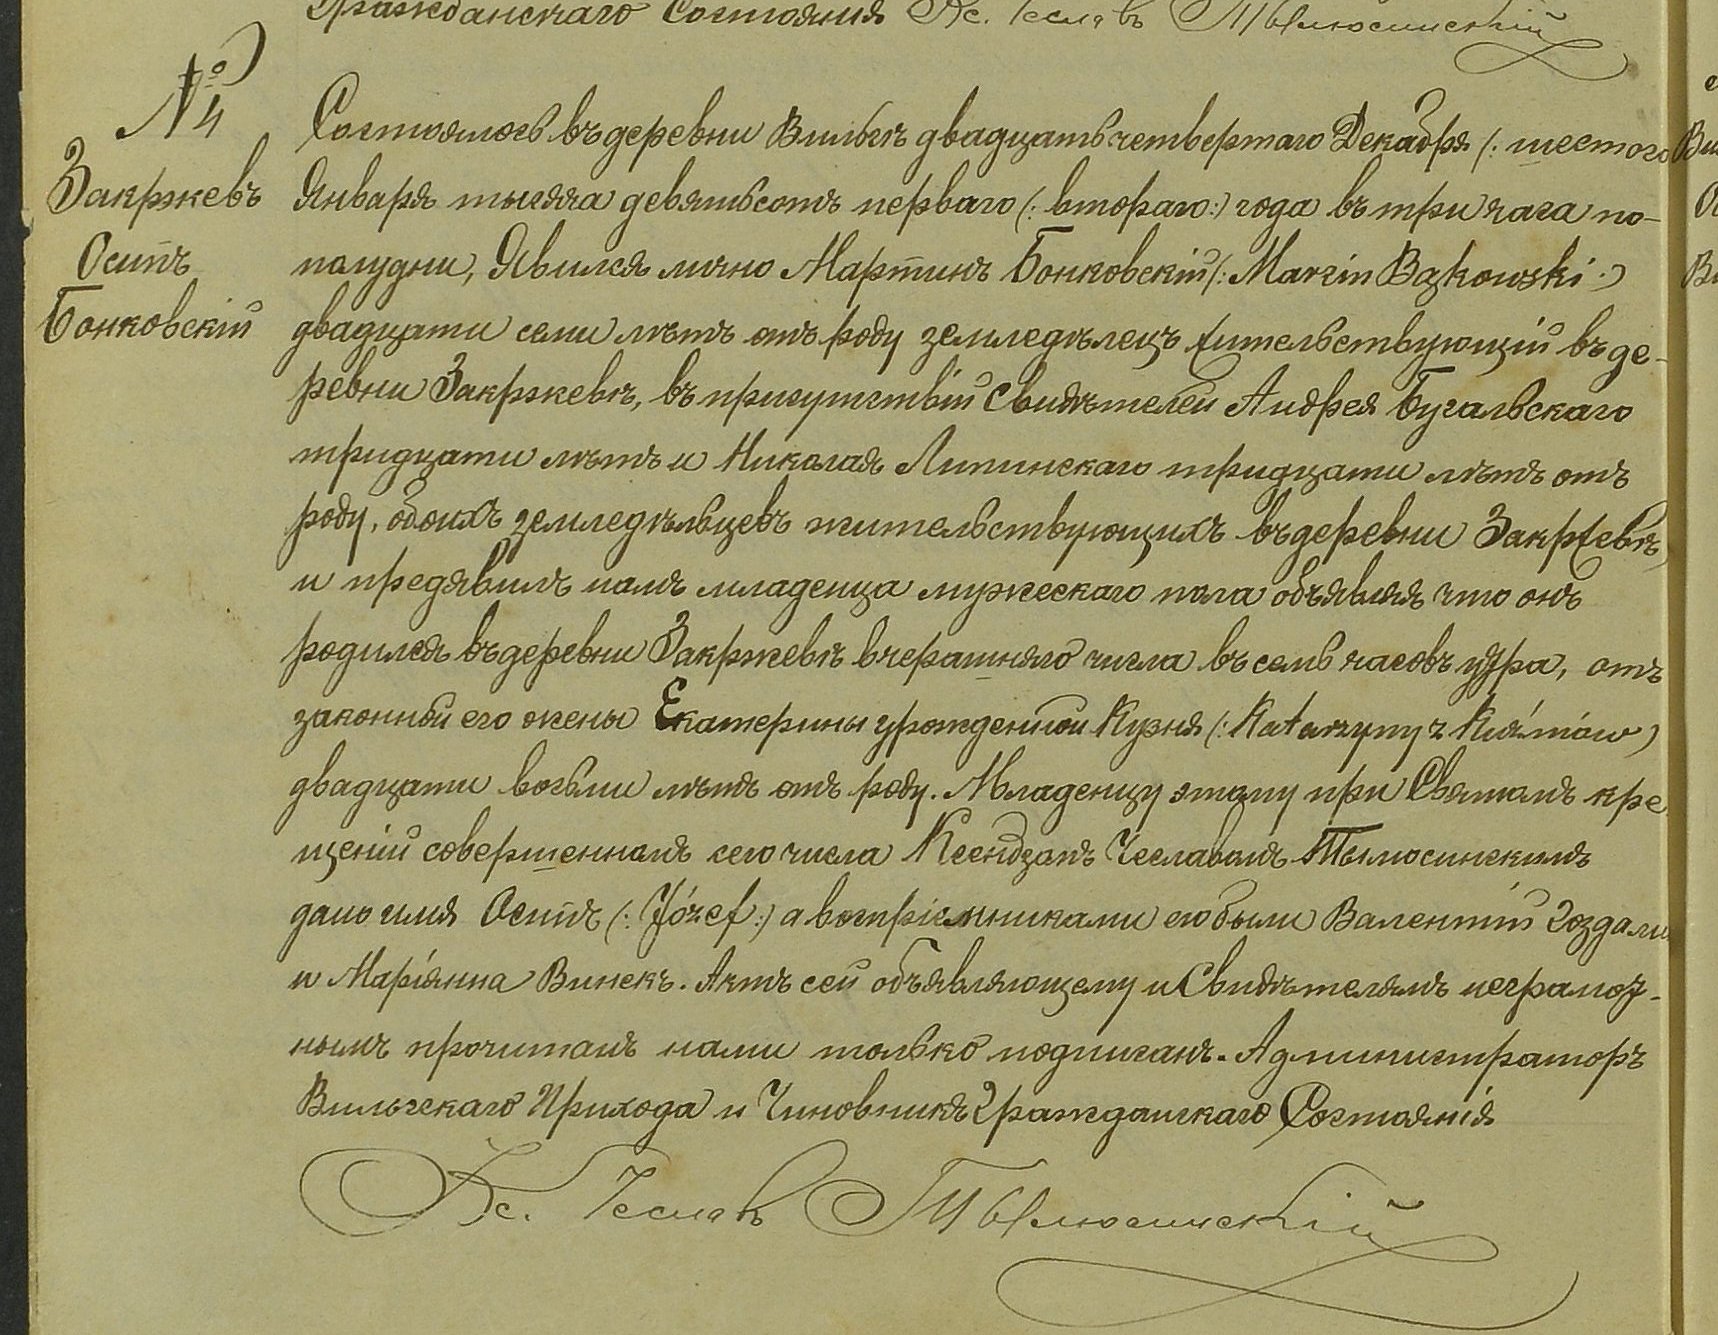 Гражданскаго Состоянія Кс. Чеславъ Тымосинскій
№ 4
Закржевъ
Осипъ
Бонковскій
Состоялось въ деревни Вильгѣ двадцать четвертаго Декабря (: шестого
Января тысяча девятьсотъ перваго (: втораго :) года въ три часа по-
полудни, Явился лично Мартинъ Бонковскій (: Marcin Bąkowski :)
двадцати семи лѣтъ отъ роду земледѣлецъ жительствующій въ де-
ревни Закржевѣ, въ присутствіи Свидѣтелей Андрея Бугальскаго
тридцати лѣтъ и Николая Липинскаго тридцати лѣтъ отъ
роду, обоихъ земледѣльцевъ жительствующихъ въ деревни Закржевѣ,
и предявилъ намъ младенца мужескаго пола объявляя что онъ
родился въ деревни Закржевѣ вчерашняго числа въ семь часовъ утра, отъ
законной его жены Екатерины урожденной Кузня (: Katarzyny z Kuźniów)
двадцати восьми лѣтъ отъ роду. Младенцу этому при Святомъ кре-
щеніи совершенномъ сего числа Ксендзомъ Чеславомъ Тымосинскимъ
дано имя Осипъ (: Józef :) а воспріемниками его были Валентій
и Маріянна Винекъ. Актъ сей объявляющему и Свидѣтелямъ неграмот-
нымъ прочитанъ нами только подписанъ. Администраторъ
Вильгскаго Прихода и Чиновникъ Гражданскаго Состоянія
Кс. Чеславъ Тымосинскій